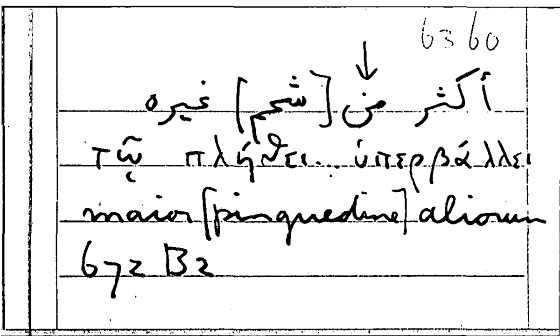 6360
↓
أكثر من [شحم] غيره
τῷ πλήθει... ὑπερβάλλει
maior [pinguedine] aliorum
672 B2